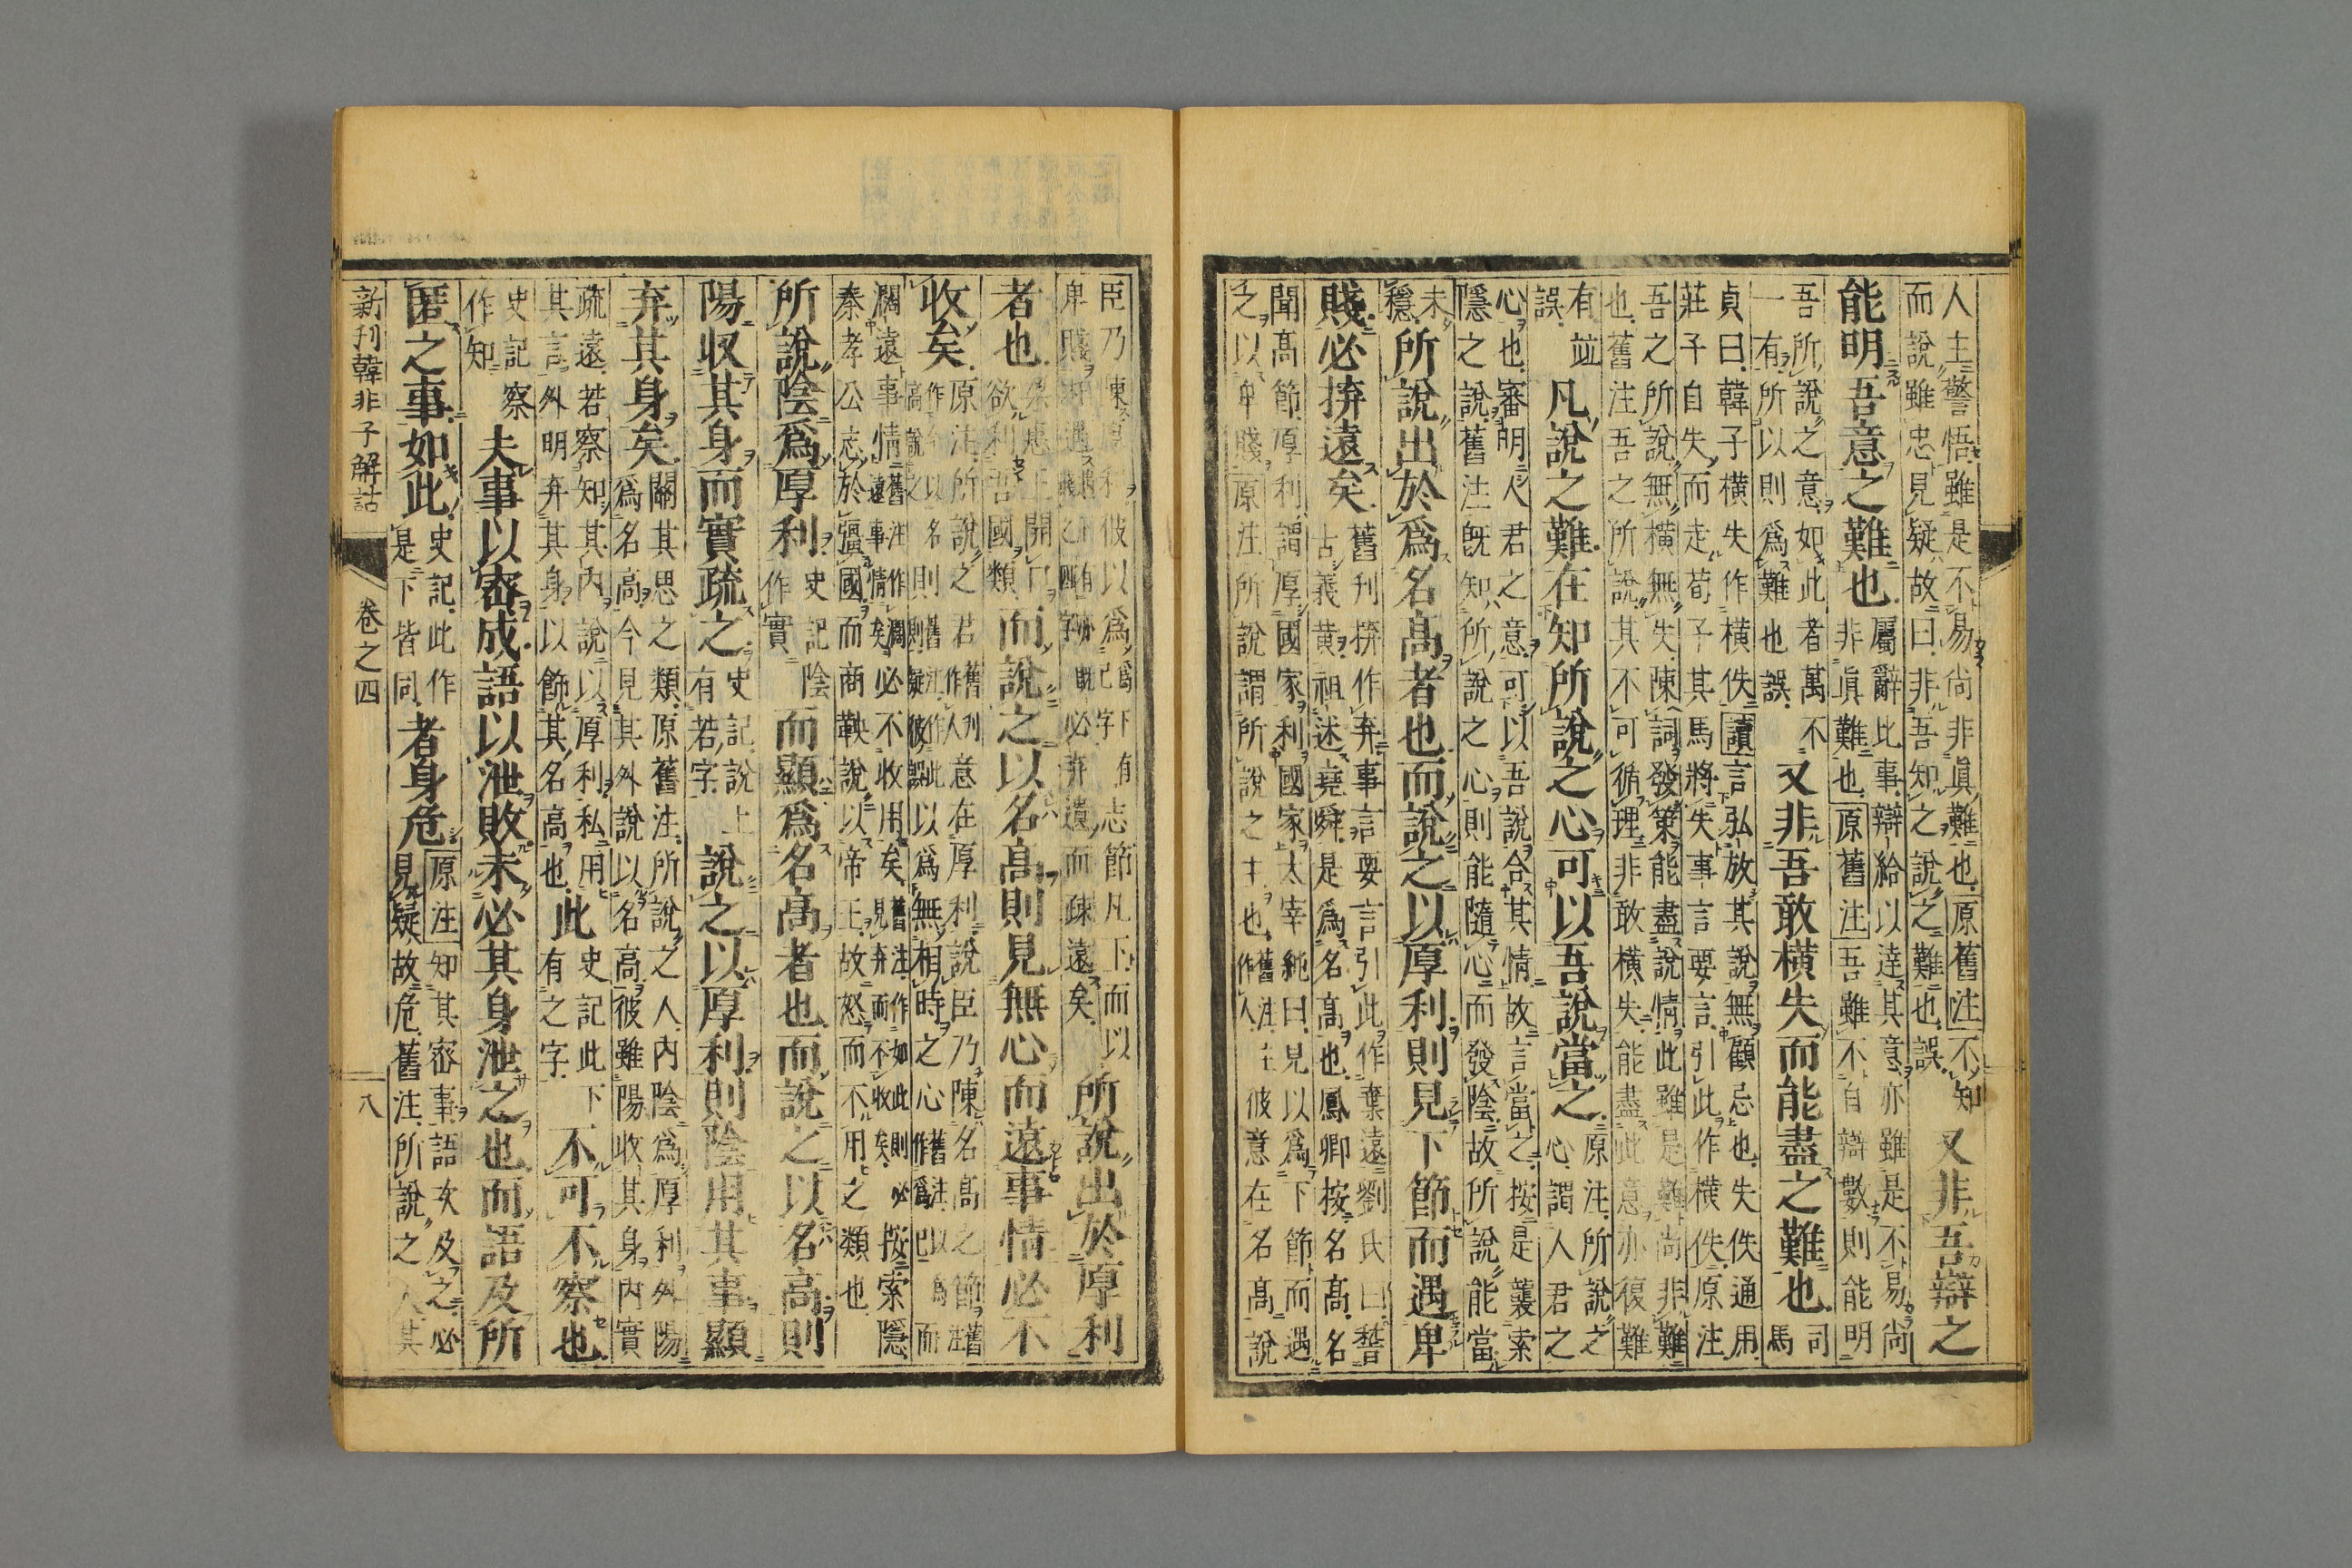 人主警悟雖是不易尚非眞難也原舊注不知
而說雖忠見疑故曰非吾知之說之難也誤
又非吾辯之
能明吾意之難也
屬辭此事辯給以達其意亦雖是不易尚
非眞難也原舊注吾雖不自辯數則能明
吾所說之意如此者萬不
一有所以則爲難也誤
又非吾敢橫失而能盡之難也
司
馬
貞曰韓子橫失作橫佚讀言弘放其說無顧忌也失佚通用
莊子自失而走荀子其馬將失事言要言引此作橫佚原注
吾之所說無橫無失陳詞發策能盡說情此雖是難尚非難
也舊注吾之所說其不可循理非敢橫失能盡此意亦復難
有並
誤
凡說之難在知所說之心可以吾說當之
原注所說之
心謂人君之
心也審明人君之意可以吾說合其情故言當之按是蘘索
隱之說舊注既知所說之心則能隨心而發陰故所說能當
未
穩
所說出於爲名高者也而說之以厚利則見下節而遇卑
賤必捹遠矣
舊刊捹作弃事言要言引此作棄遠劉氏曰稽
古義黃祖述堯舜是爲名高也鳳卿按名高名
聞高節厚利謂厚國家利國家太宰純曰見以爲下節而遇
之以卑賤原注所說謂所說之主也舊注作人主彼意在名高說
臣乃陳厚利彼以爲志節凡下而以
卑賤必弃遺而疎遠矣
所說出於厚利
者也
欲利吾國類
而說之以名高則見無心而遠事情必不
收矣
原注所說之君意在厚利說臣乃陳名高之節
以爲無相時之心而
闊遠事情必不收用矣按索隱
秦孝公志於彊國而商鞅說以帝王故怒而不用之類也
所說陰爲厚利
史記陰
作實
而顯爲名高者也而說之以名高則
陽收其身而實疏之
史記說上
有若字
說之以厚利則陰用其事顯
弃其身矣
關其思之類原舊注所說之人內陰爲厚利外陽
爲名高今見其外說以名高彼雖陽收其身內實
疏遠若察知其內說以厚利私用
其言外明弃其身以飾其名高也
此
史記此下
有之字
不可不察也
史記察
作知
夫事以密成語以泄敗未必其身泄之也而語及所
匿之事如此
史記此作
是下皆同
者身危
原注知其密事語次及之必
見疑故危舊注所說之人其
新刊韓非子解詁
卷之四
八